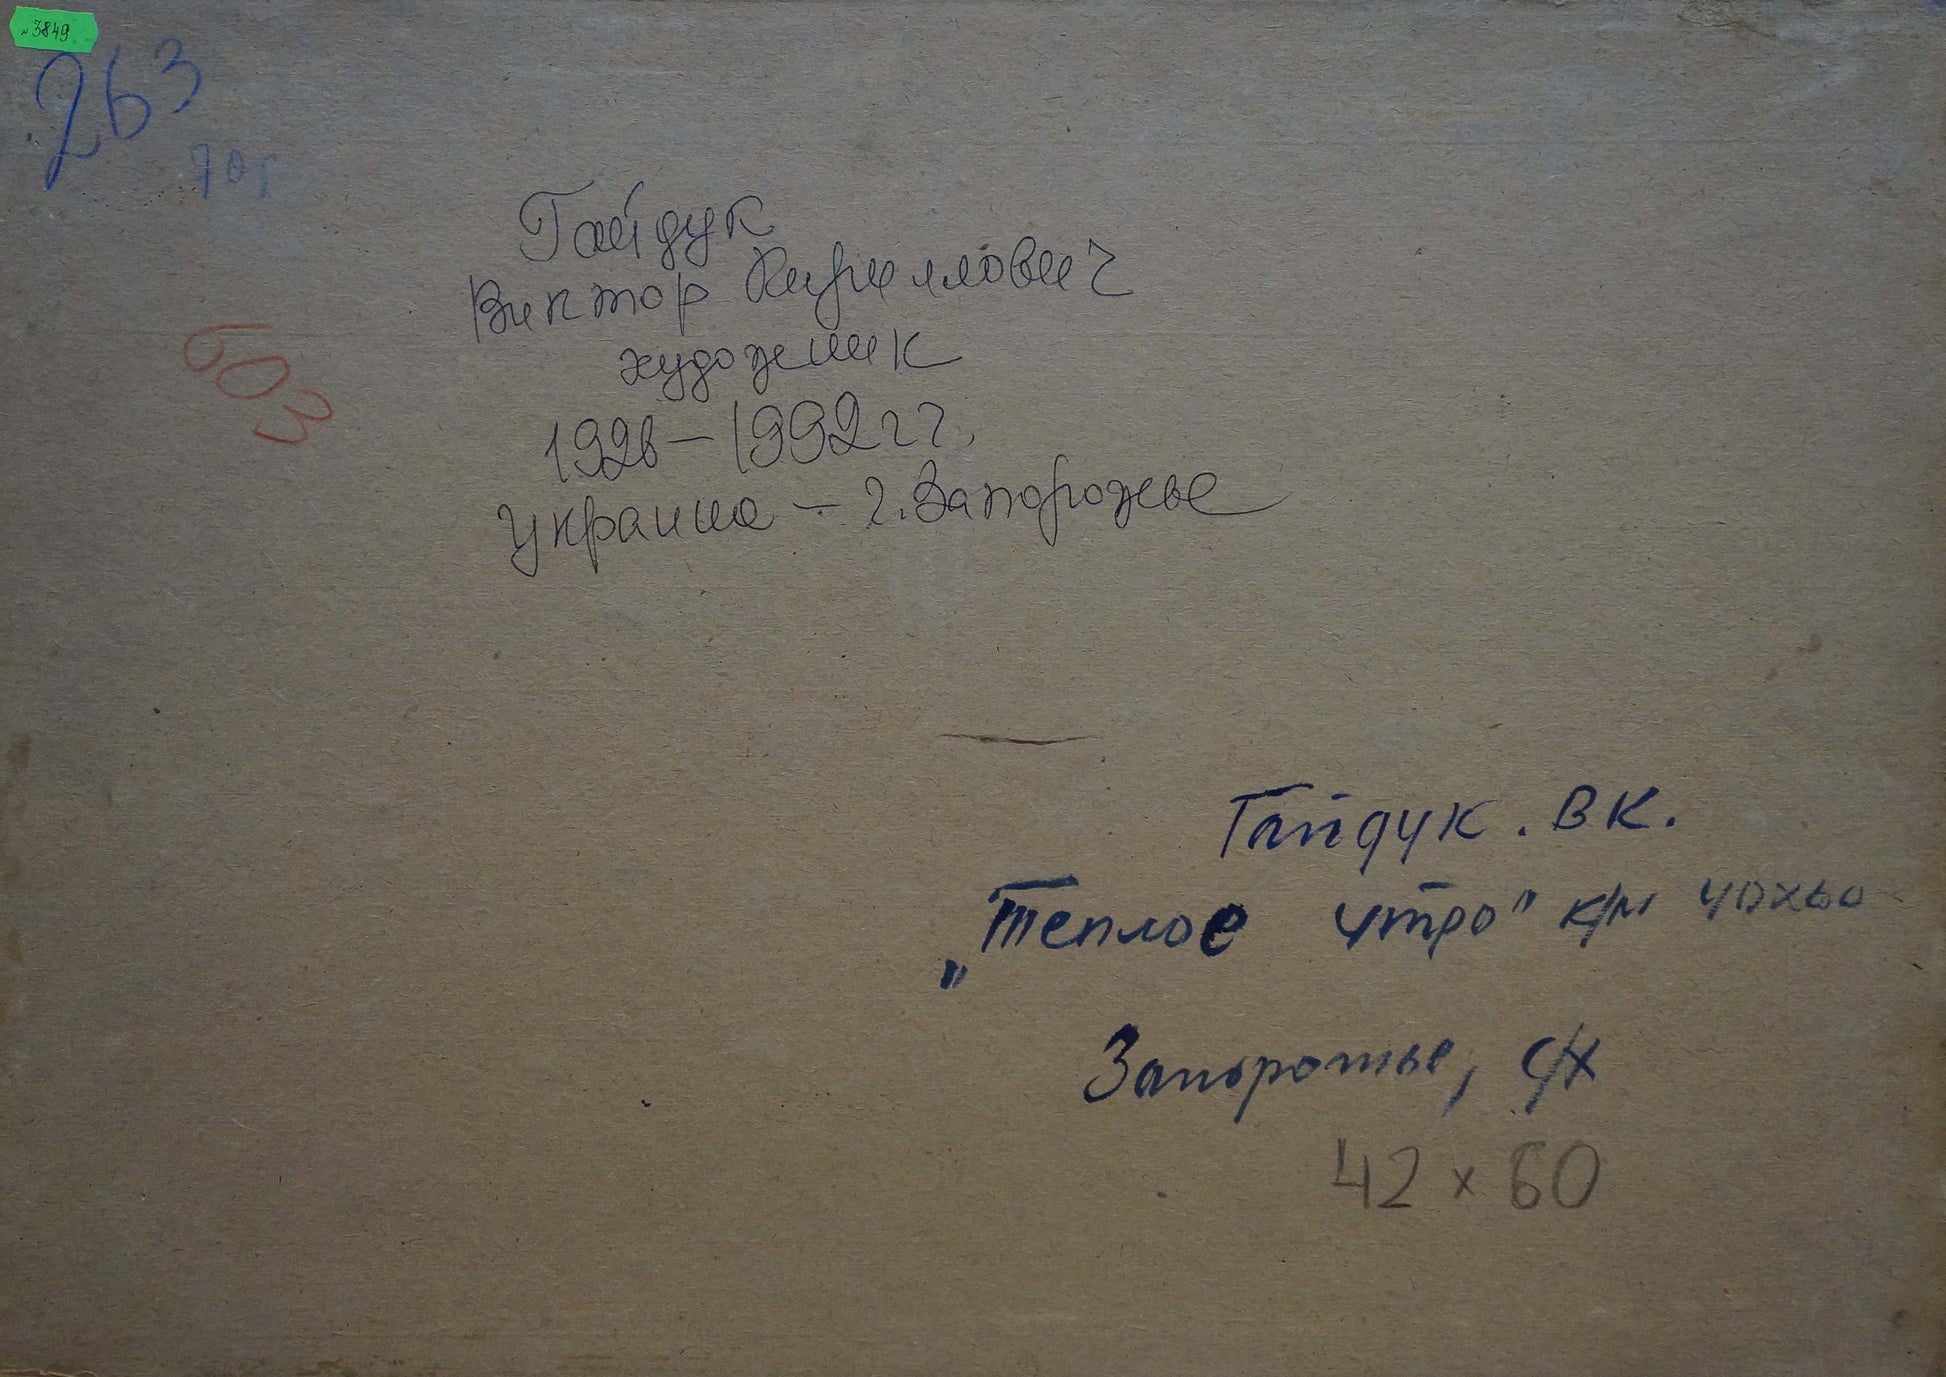 №3849
263
70г
Гайдук
Виктор Кириллович
художник
603
1926-1992 гг.
Украина - г. Запорожье
Гайдук. ВК.
„Теплое утро" к/м 40х60
Запорожье, с/х
42 х 60